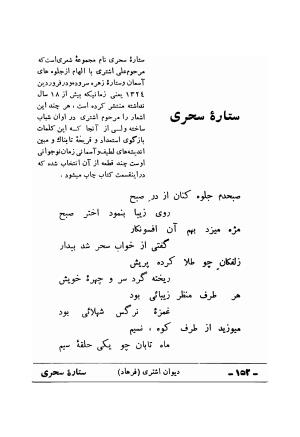 ستارهٔ سحری
ستارهٔ سحری نام مجموعهٔ شعری است که
مرحوم علی اشتری با الهام از جلوه های
آسمان و ستارهٔ زهره سروده و در فروردین
۱۳۲۴ یعنی زمانیکه بیش از ۱۸ سال
نداشته منتشر کرده است ، هر چند این
اشعار را مرحوم اشتری در اوان شباب
ساخته ولی از آنجا که این کلمات
بازگوی استعداد و قریحهٔ تابناك و مبین
اندیشه‌های لطیف و آسمانی زمان نوجوانی
اوست چند قطعه از آن انتخاب شده که
در اینقسمت کتاب چاپ میشود .
صبحدم جلوه کنان از در صبح
روی زیبا بنمود اختر صبح
مژه میزد بهم آن افسونکار
گفتی از خواب سحر شد بیدار
زلفکان چو طلا کرده پریش
ریخته گرد سر و چهرهٔ خویش
هر طرف منظر زیبائی بود
غمزهٔ نرگس شهلائی بود
میوزید از طرف کوه ، نسیم
ماه تابان چو یکی حلقه سیم
ستارهٔ سحری
دیوان اشتری (فرهاد)
- ۱۵۲ -